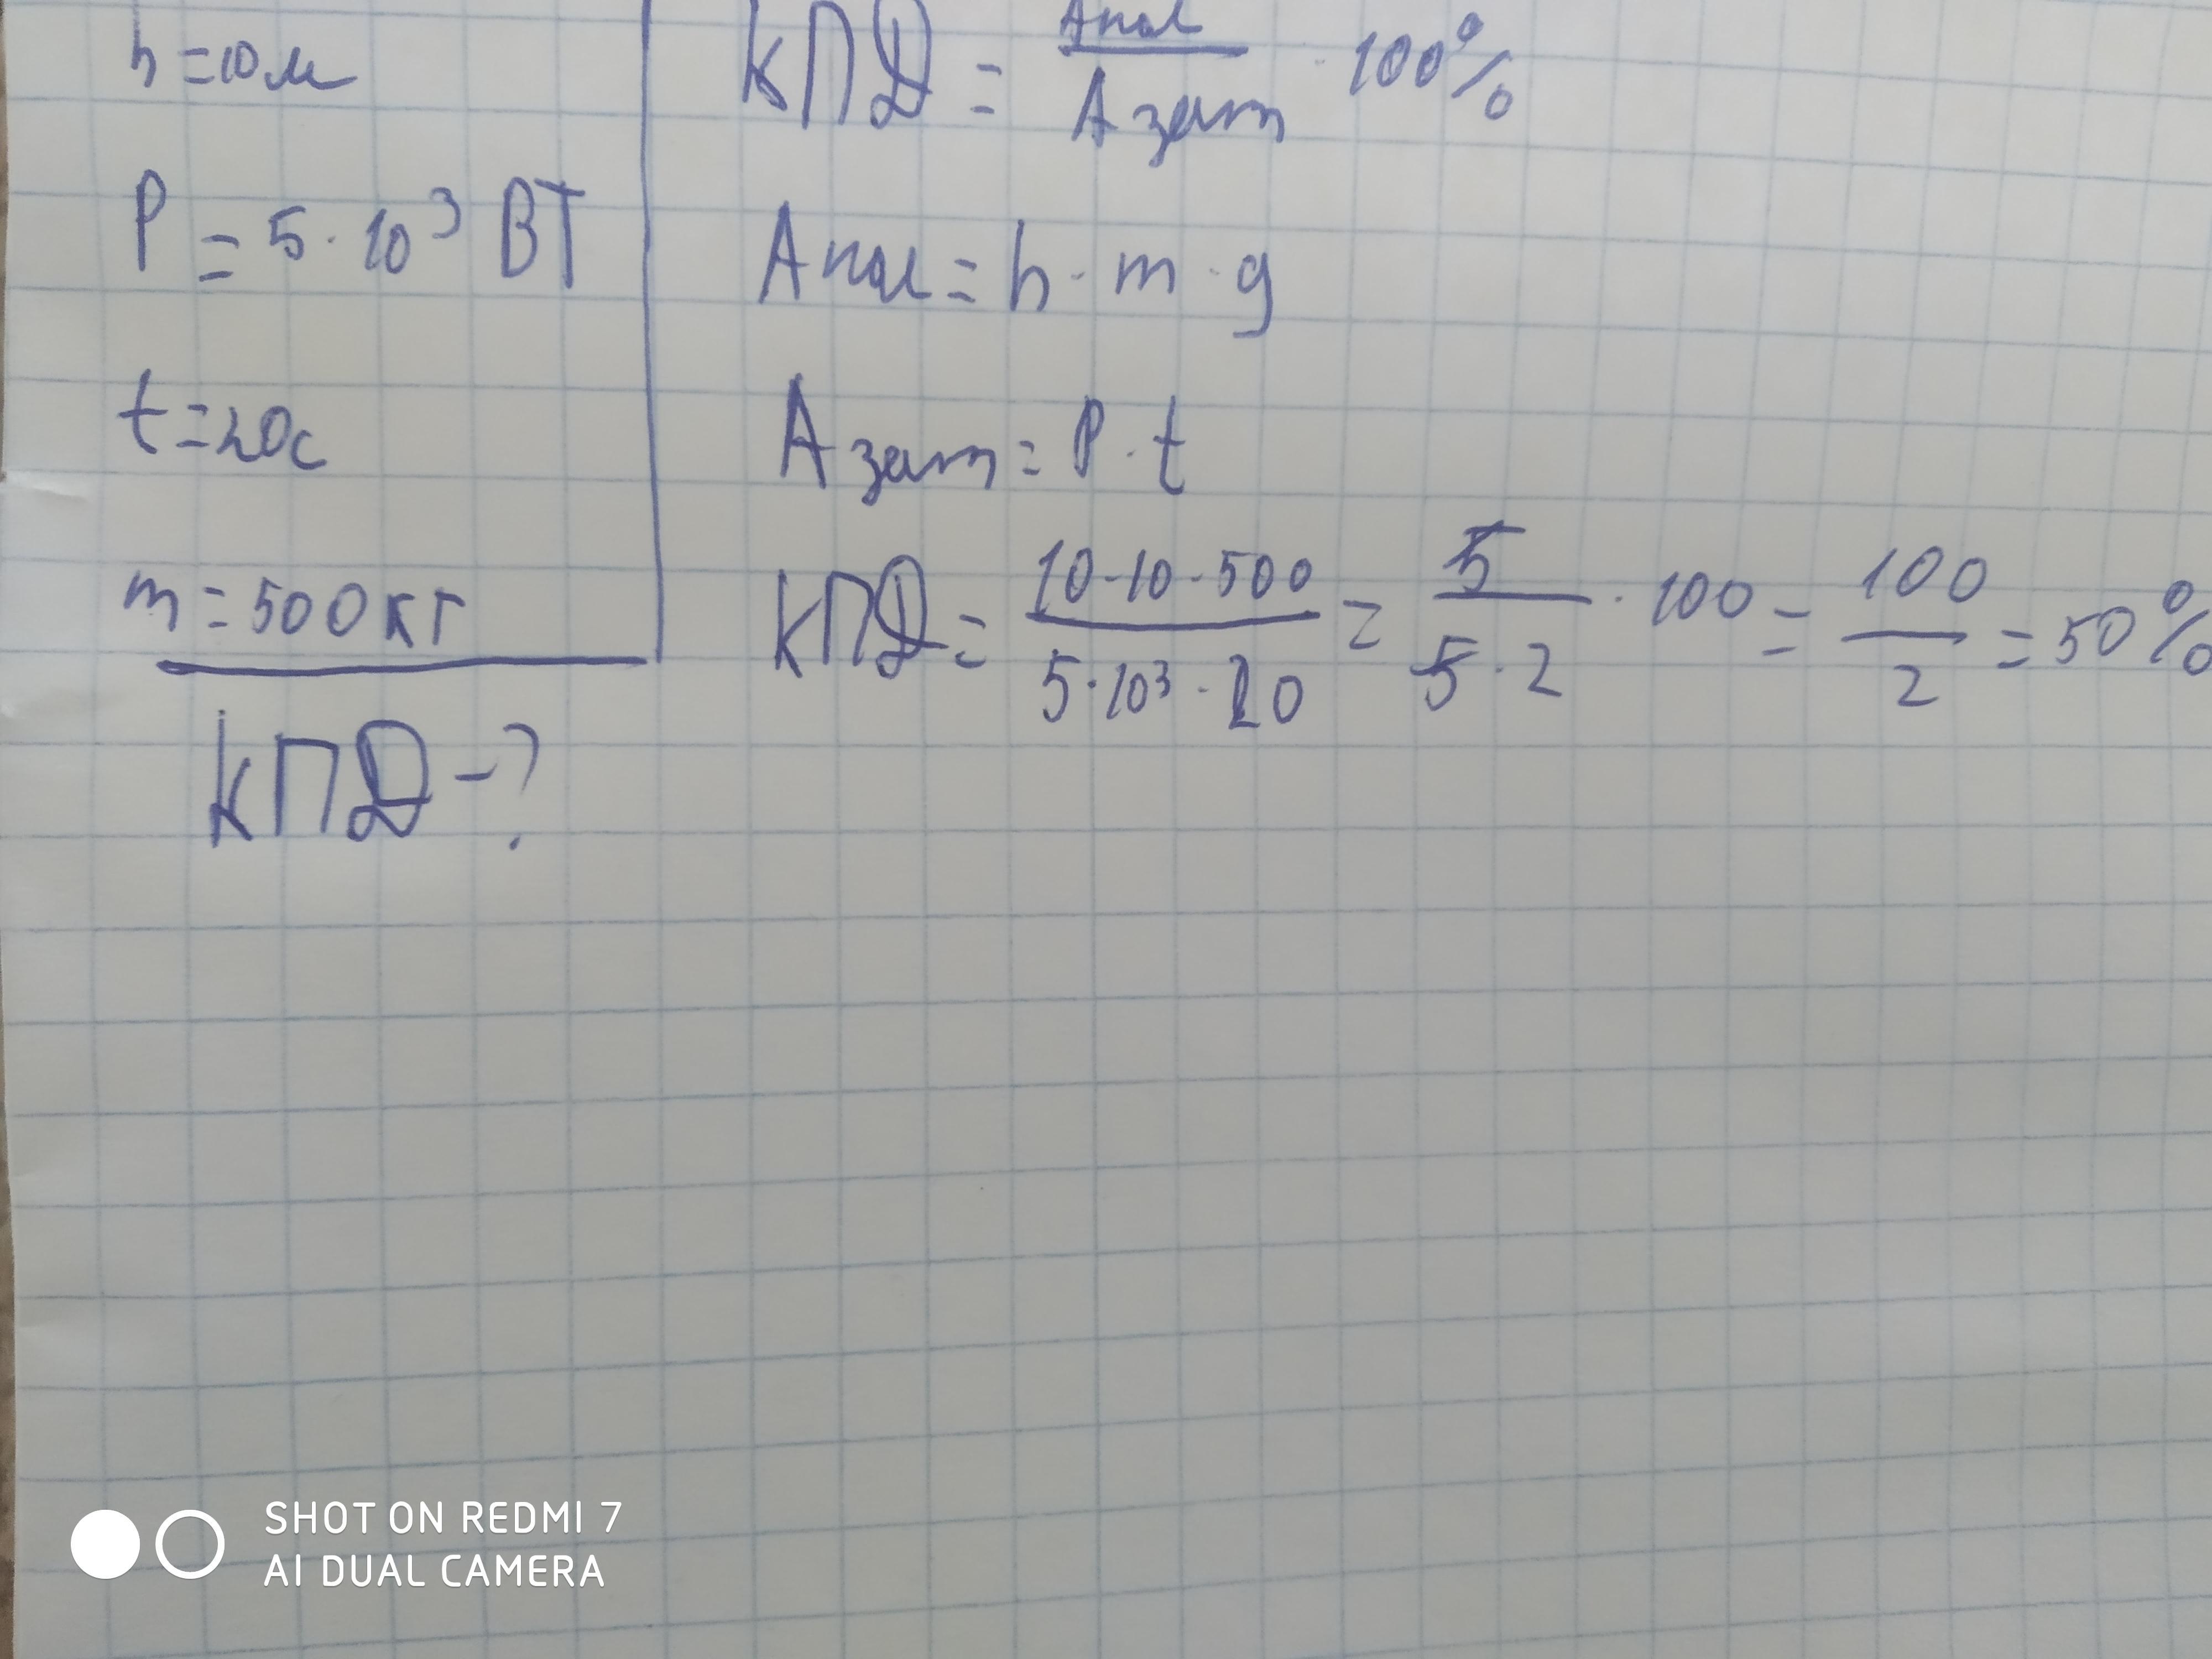 h = 10 м
P = 5 · 10³ ВТ
t = 20с
m = 500 кг
КПД - ?
КПД = Aпол / Aзат · 100%
Aпол = h · m · g
Aзат = P · t
КПД = 10 · 10 · 500 / 5 · 10³ · 20 = 5 / 5 · 2 · 100 = 100 / 2 = 50%
SHOT ON REDMI 7
AI DUAL CAMERA